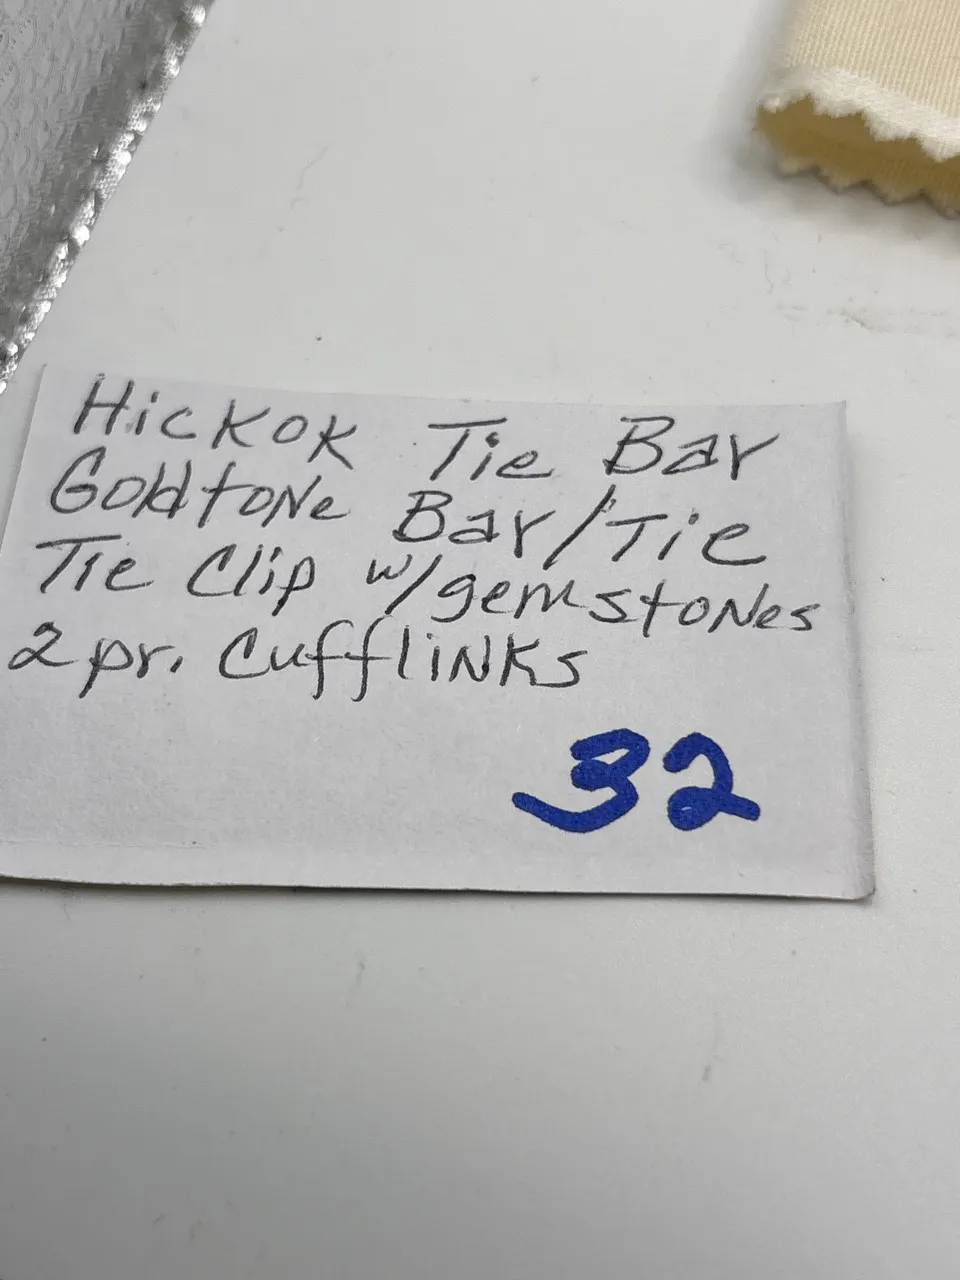 Hickok Tie Bar
Goldtone Bar/Tie
Tie Clip w/gemstones
2 pr. Cufflinks
32